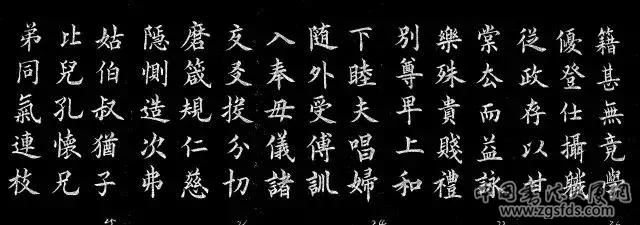 籍甚無竟學
優登仕攝職
從政存以甘
棠去而益詠
樂殊貴賤禮
別尊卑上和
下睦夫唱婦
随外受傅訓
入奉母儀諸
交友投分切
磨箴規仁慈
隱惻造次弗
姑伯叔猶子
比兒孔懷兄
弟同氣連枝
www.zgsfds.com